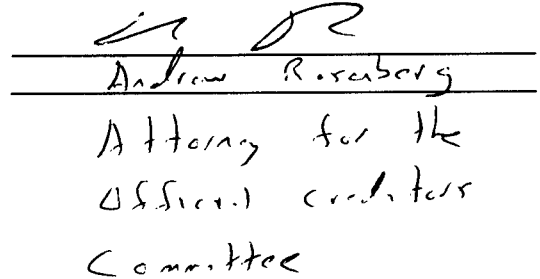 Andrew Rosenberg
Attorney for the
Official creditors
Committee